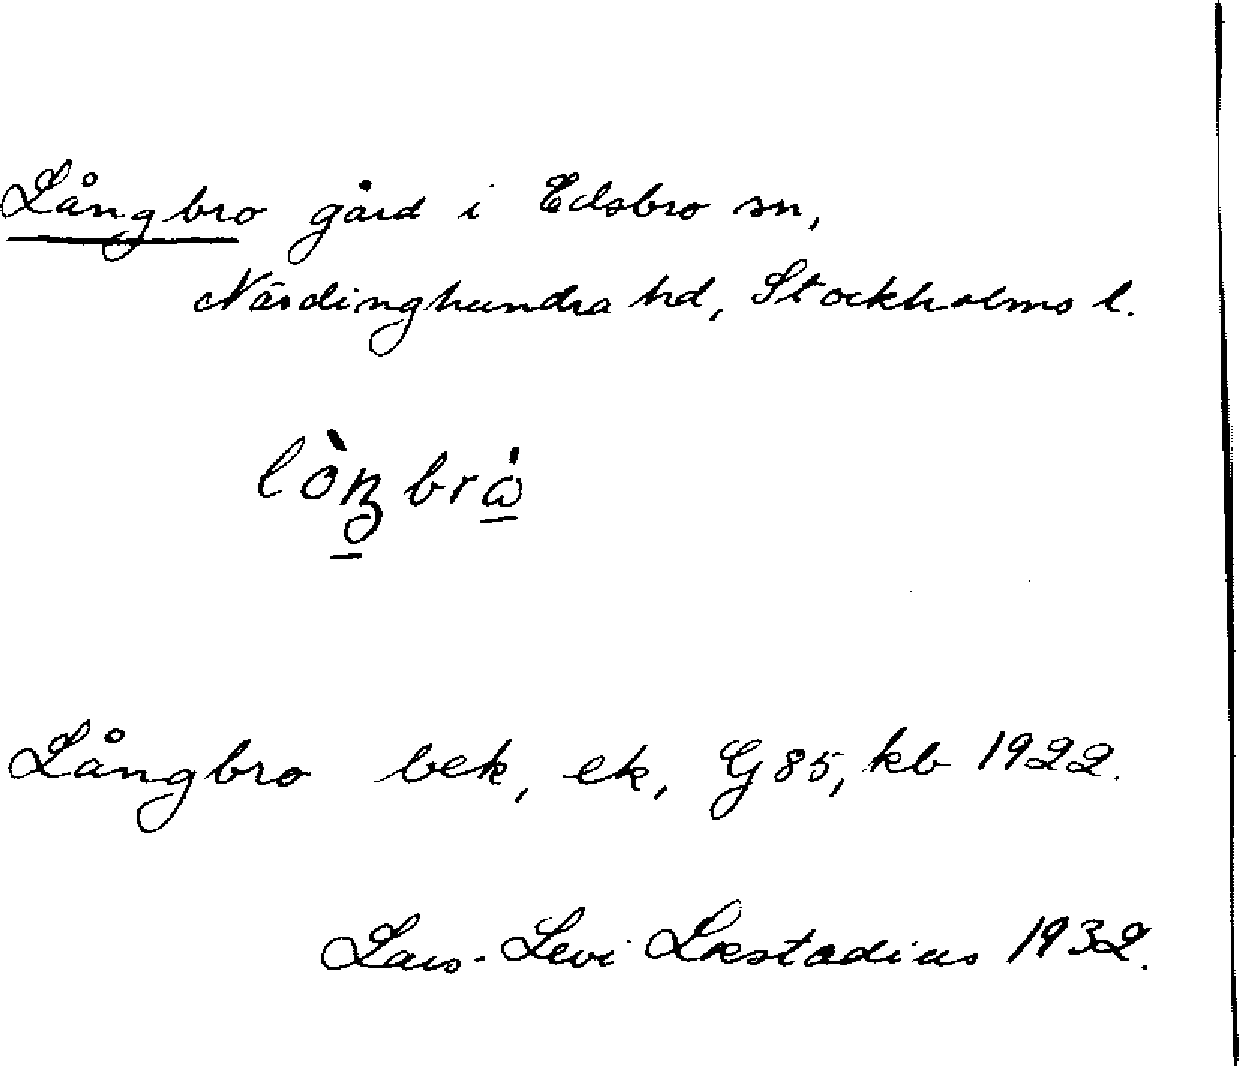 Långbro gård i Edsbro sn,
Närdinghundra hd, Stockholms l.
Långbro bek, ek, G 85, kb 1922.
Lars-Levi Læstadius 1932.